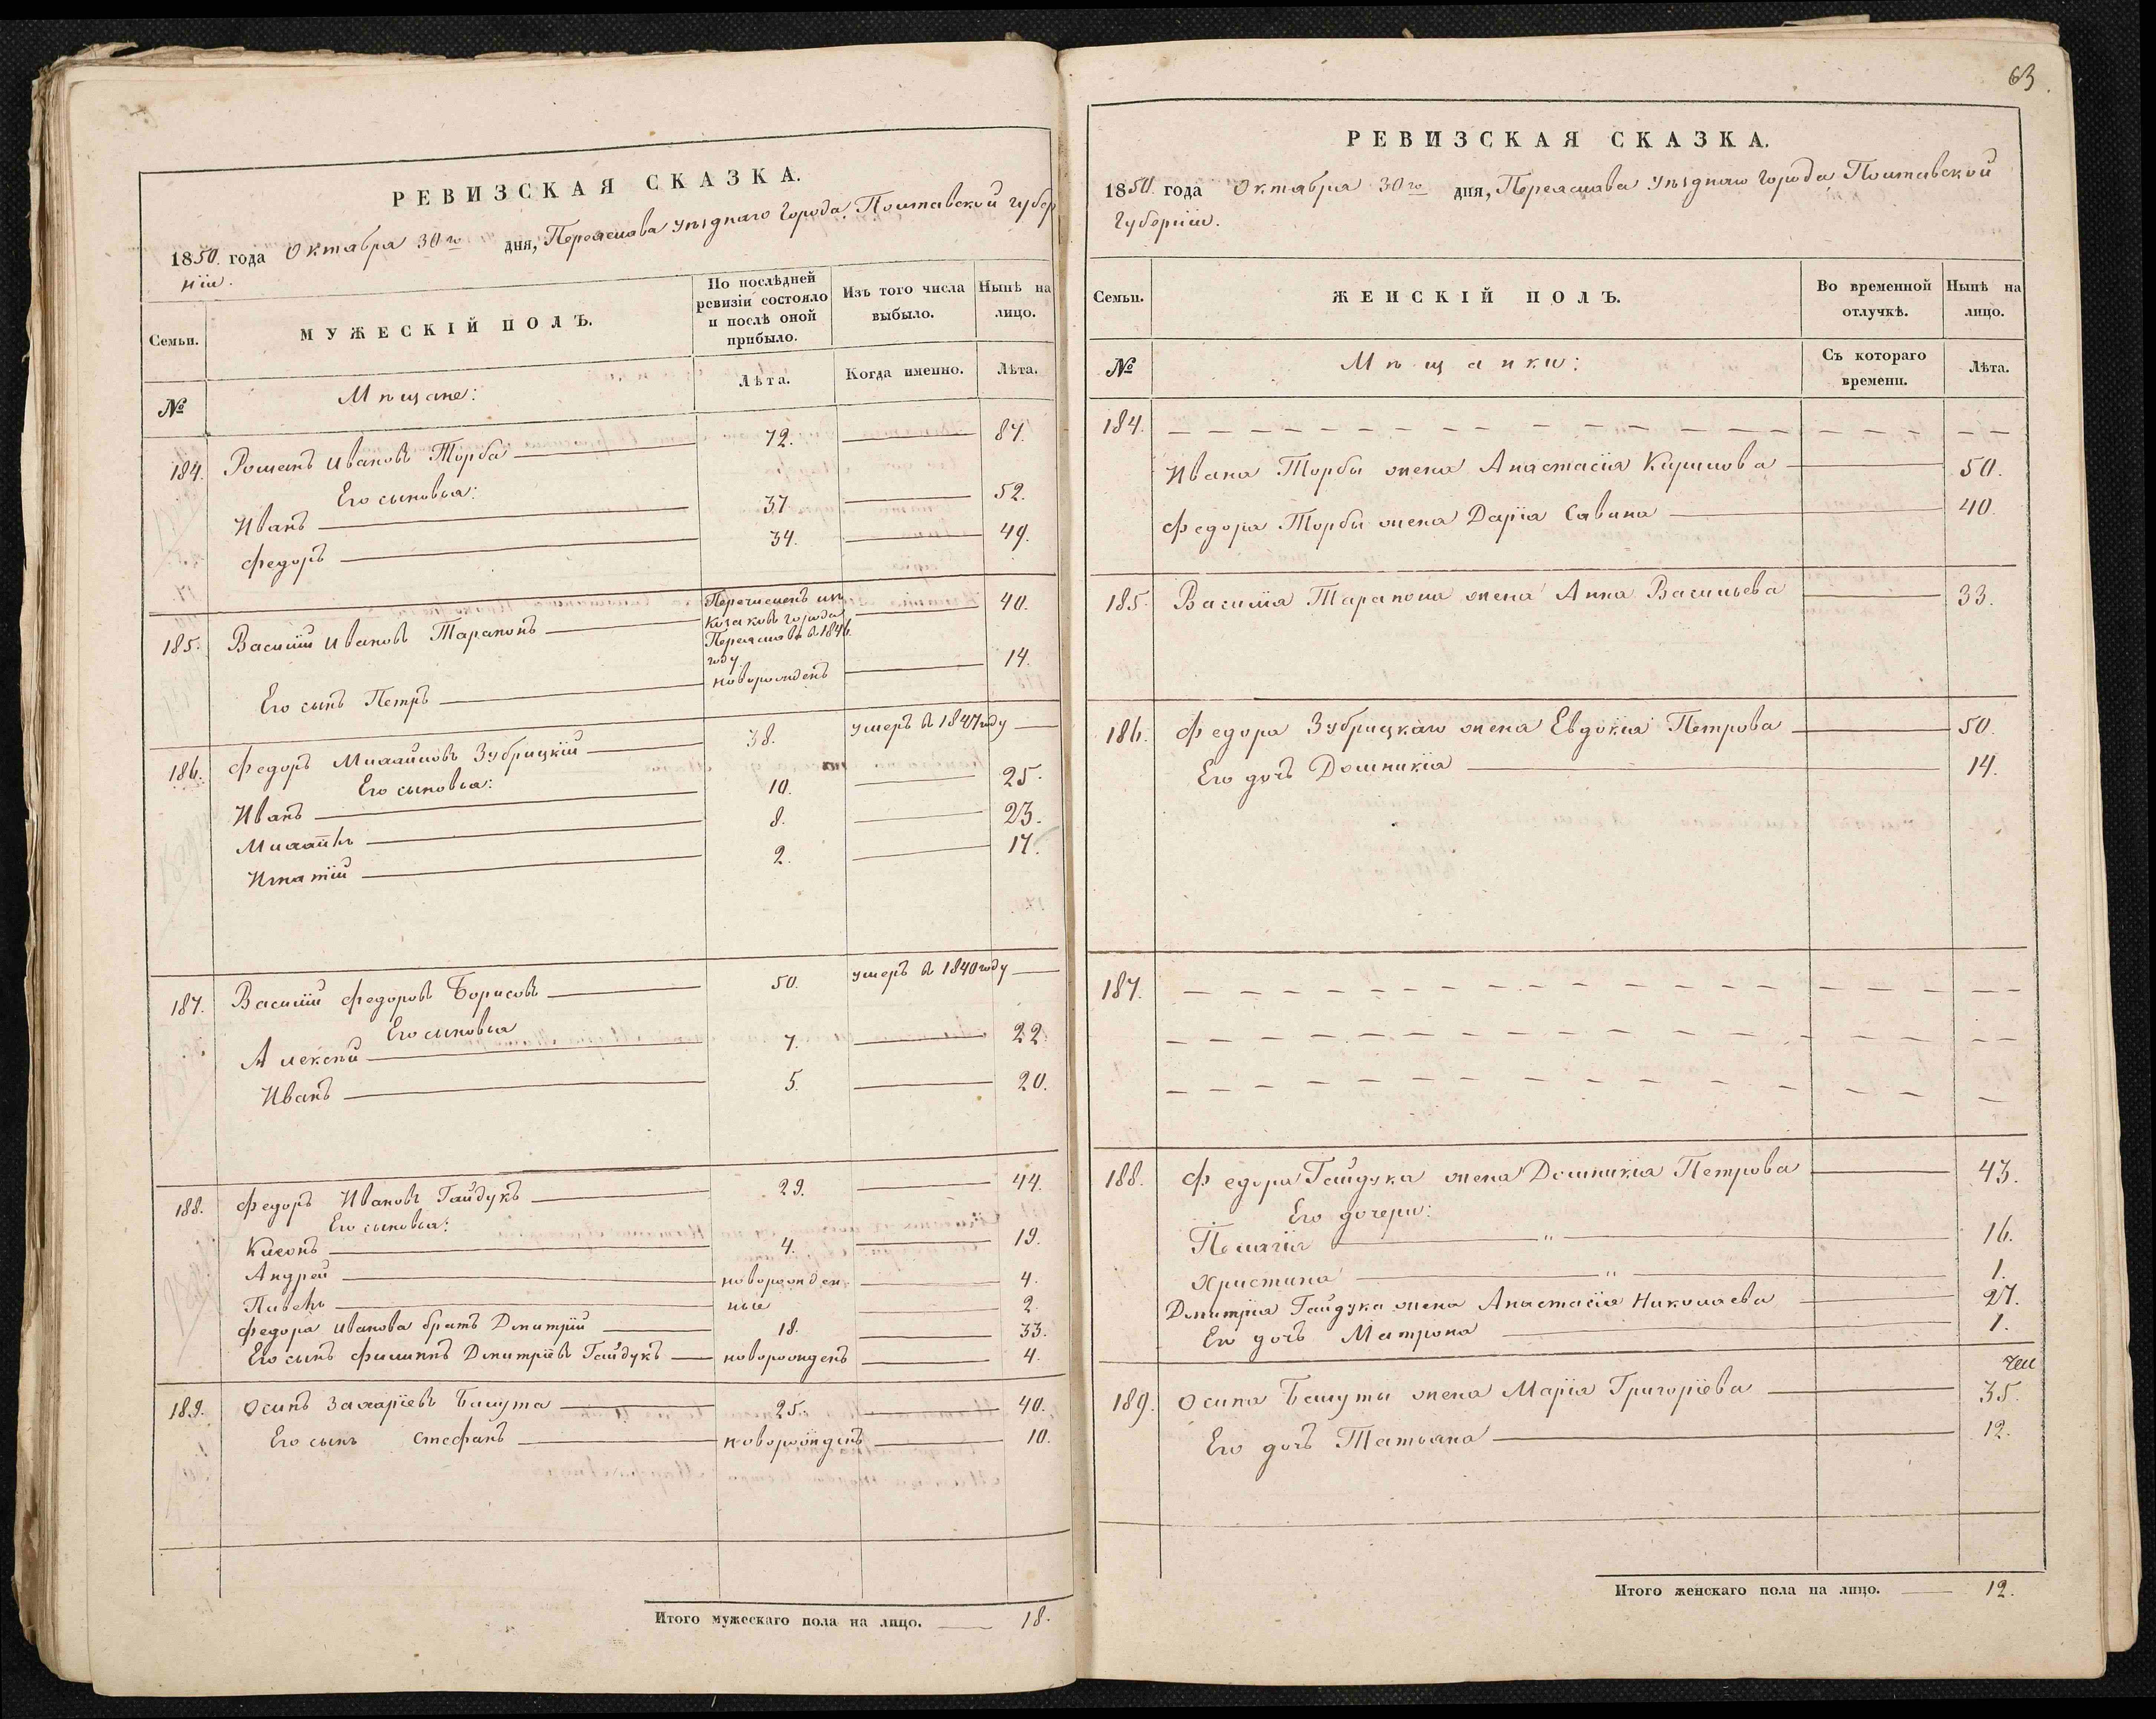 РЕВИЗСКАЯ СКАЗКА.
1850 года Октября 30го дня, Переяслава уѣзднаго города, Полтавской губер
ніи.
Семьи.
МУЖЕСКІЙ ПОЛЪ.
По послѣдней ревизіи состояло и послѣ оной прибыло.
Изъ того числа выбыло.
Нынѣ на лицо.
№
Мѣщане:
Лѣта.
Когда именно.
Лѣта.
184. Романъ Ивановъ Торба 72. 87.
Его сыновья:
Иванъ 37 52.
Федоръ 34. 49.
185. Василій Ивановъ Тарапонъ Перечисленъ изъ Козаковъ города Переяслава въ 1846. году 40.
Его сынъ Петръ новорожденъ 14.
186. Федоръ Михайловъ Зубрицкій 38. умеръ въ 1847 году
Его сыновья:
Иванъ 10. 25.
Михайлъ 8. 23.
Игнатій 2. 17.
187. Василій Федоровъ Борисовъ 50. умеръ въ 1840 году
Его сыновья
Алексѣй 7. 22.
Иванъ 5. 20.
188. Федоръ Ивановъ Гайдукъ 29. 44.
Его сыновья:
Ксеонъ 4. 19.
Андрей новорожден 4.
ные 2.
Федора Иванова братъ Дмитрій 18. 33.
Его сынъ Филиппъ Дмитріевъ Гайдукъ новорожденъ 4.
189. Осипъ Захаріевъ Башута 25. 40.
Его сынъ Стефанъ новорожденъ 10.
Итого мужескаго пола на лицо. 18.
63.
РЕВИЗСКАЯ СКАЗКА.
1850 года Октября 30го дня, Переяслава уѣзднаго города, Полтавской
Губерніи.
Семьи.
ЖЕНСКІЙ ПОЛЪ.
Во временной отлучкѣ.
Нынѣ на лицо.
№
Мѣщанки:
Съ котораго времени.
Лѣта.
184.
Ивана Торбы жена Анастасія Кирилова 50.
Федора Торбы жена Дарія Савина 40.
185. Василія Тарапона жена Анна Васильева 33.
186. Федора Зубрицкаго жена Евдокія Петрова 50.
Его дочь Домникія 14.
187.
188. Федора Гайдука жена Домникія Петрова 43.
Его дочери:
Пелагія " 16.
Христина " 1.
Дмитрія Гайдука жена Анастасія Николаева 27.
Его дочь Матрона 1.
189. Осипа Башуты жена Марія Григоріева 35.
Его дочь Татьяна 12.
Итого женскаго пола на лицо. 12.